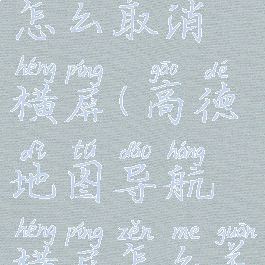 怎么取消
héng píng gāo dé
横屏(高德
dì tú dǎo háng
地图导航
héng píng zěn me guān
横屏怎么关